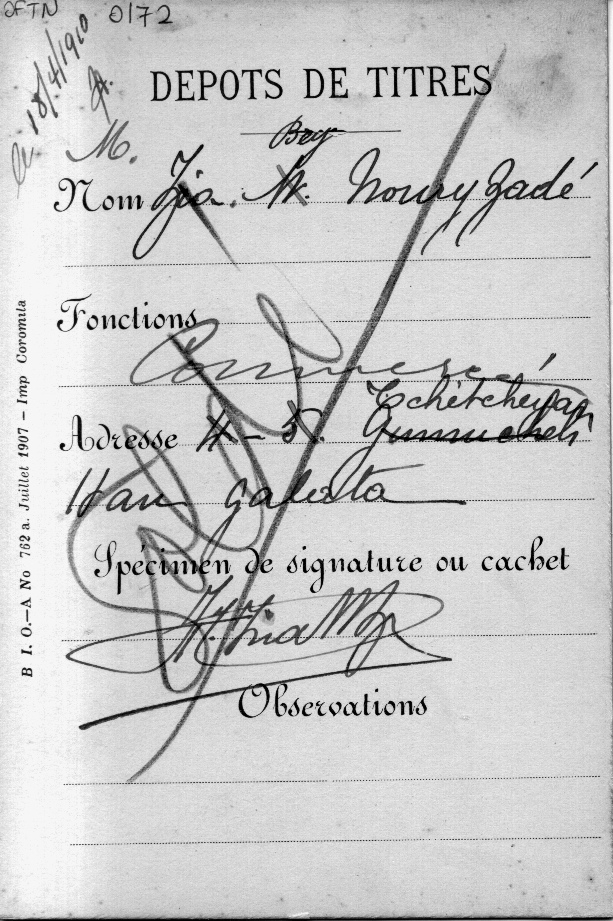 OFTN 0172
le 18/4/1910
DEPOTS DE TITRES
Bey
M.
Nom Zia. N. Noury Zadé
Fonctions
Commercé
Tchitcheyan
Adresse 4 - 5.
Han Galata
Spécimen de signature ou cachet
Zia
Observations
B I. O.—A No 762 a. Juillet 1907 — Imp Coromila